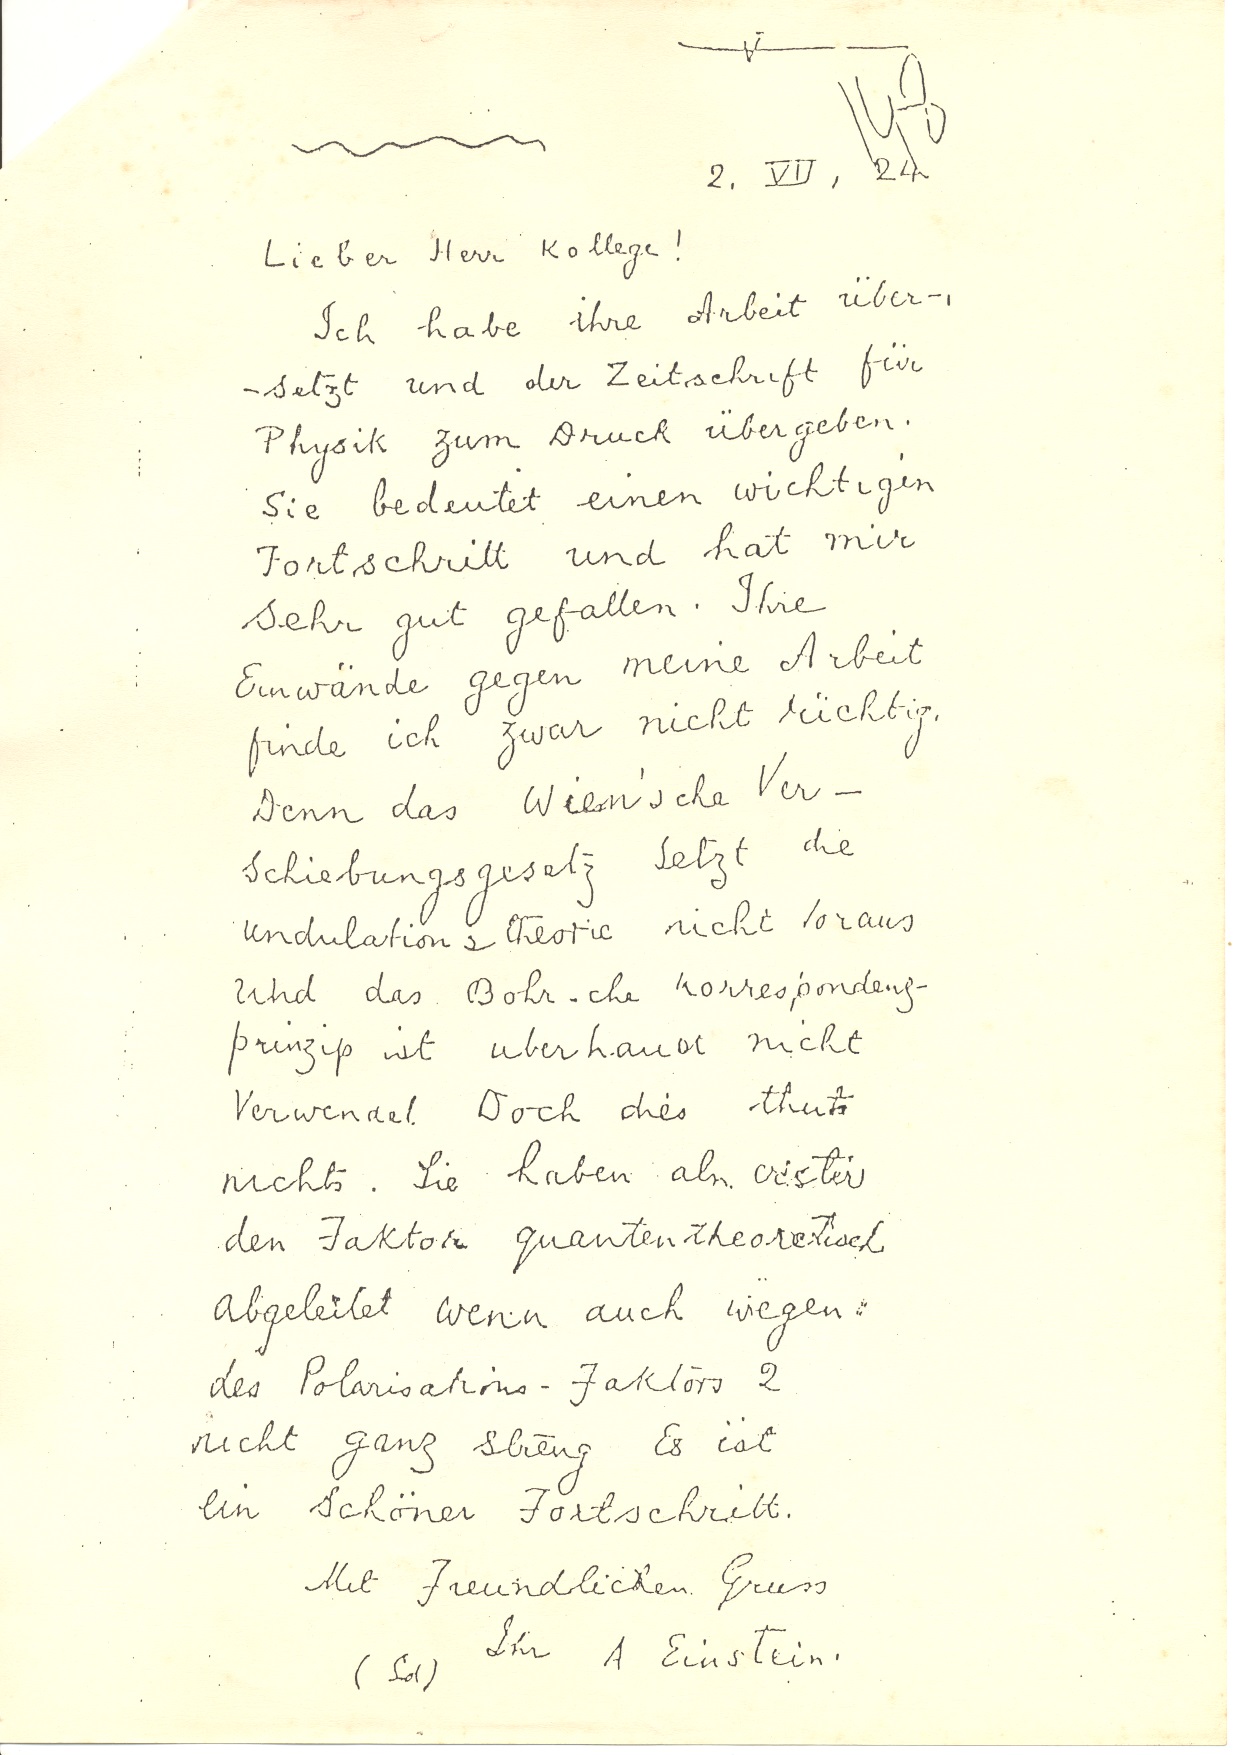 2. VII, 24
Lieber Herr Kollege!
Ich habe ihre Arbeit über-
-setzt und der Zeitschrift für
Physik zum Druck übergeben.
Sie bedeutet einen wichtigen
Fortschritt und hat mir
Sehr gut gefallen. Ihre
Einwände gegen meine Arbeit
finde ich zwar nicht richtig.
Denn das Wien'sche Ver-
Schiebungsgesetz Setzt die
Undulationstheorie nicht voraus
Und das Bohr-che Korrespondenz-
prinzip ist uberhaupt nicht
Verwendet. Doch dies thut
nichts. Sie haben als erster
den Faktor quantentheoretisch
Abgeleitet wenn auch wegen
des Polarisations-Faktors 2
nicht ganz streng Es ist
ein Schöner Fortschritt.
Mit Freundlichen Gruss
Ihr A Einstein.
(Sd)